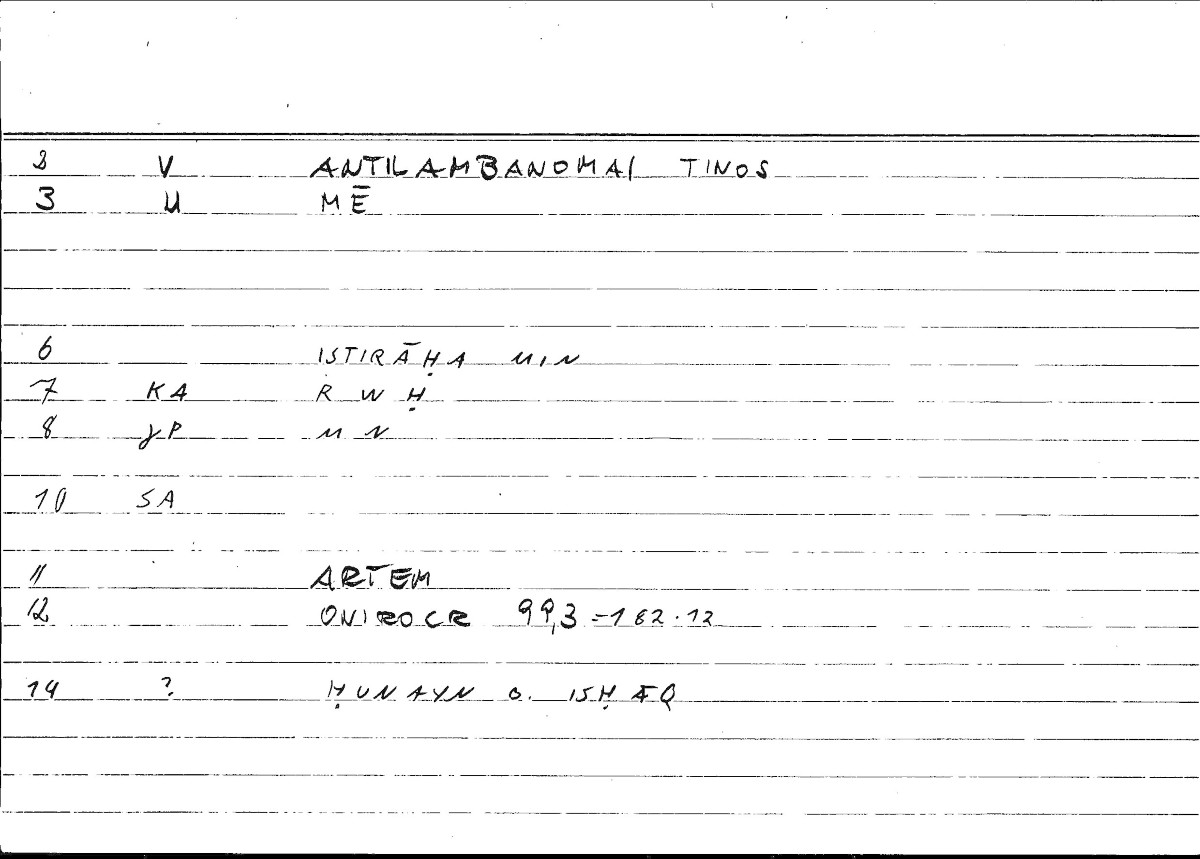 2 V ANTILAMBANOMAI TINOS
3 U MĒ
6 ISTIRĀḤA MIN
7 KA R W Ḥ
8 M N
10 SA
11 ARTEM
12 ONIROCR 99,3 = 182.12
14 ? ḤUNAYN B. ISḤĀQ